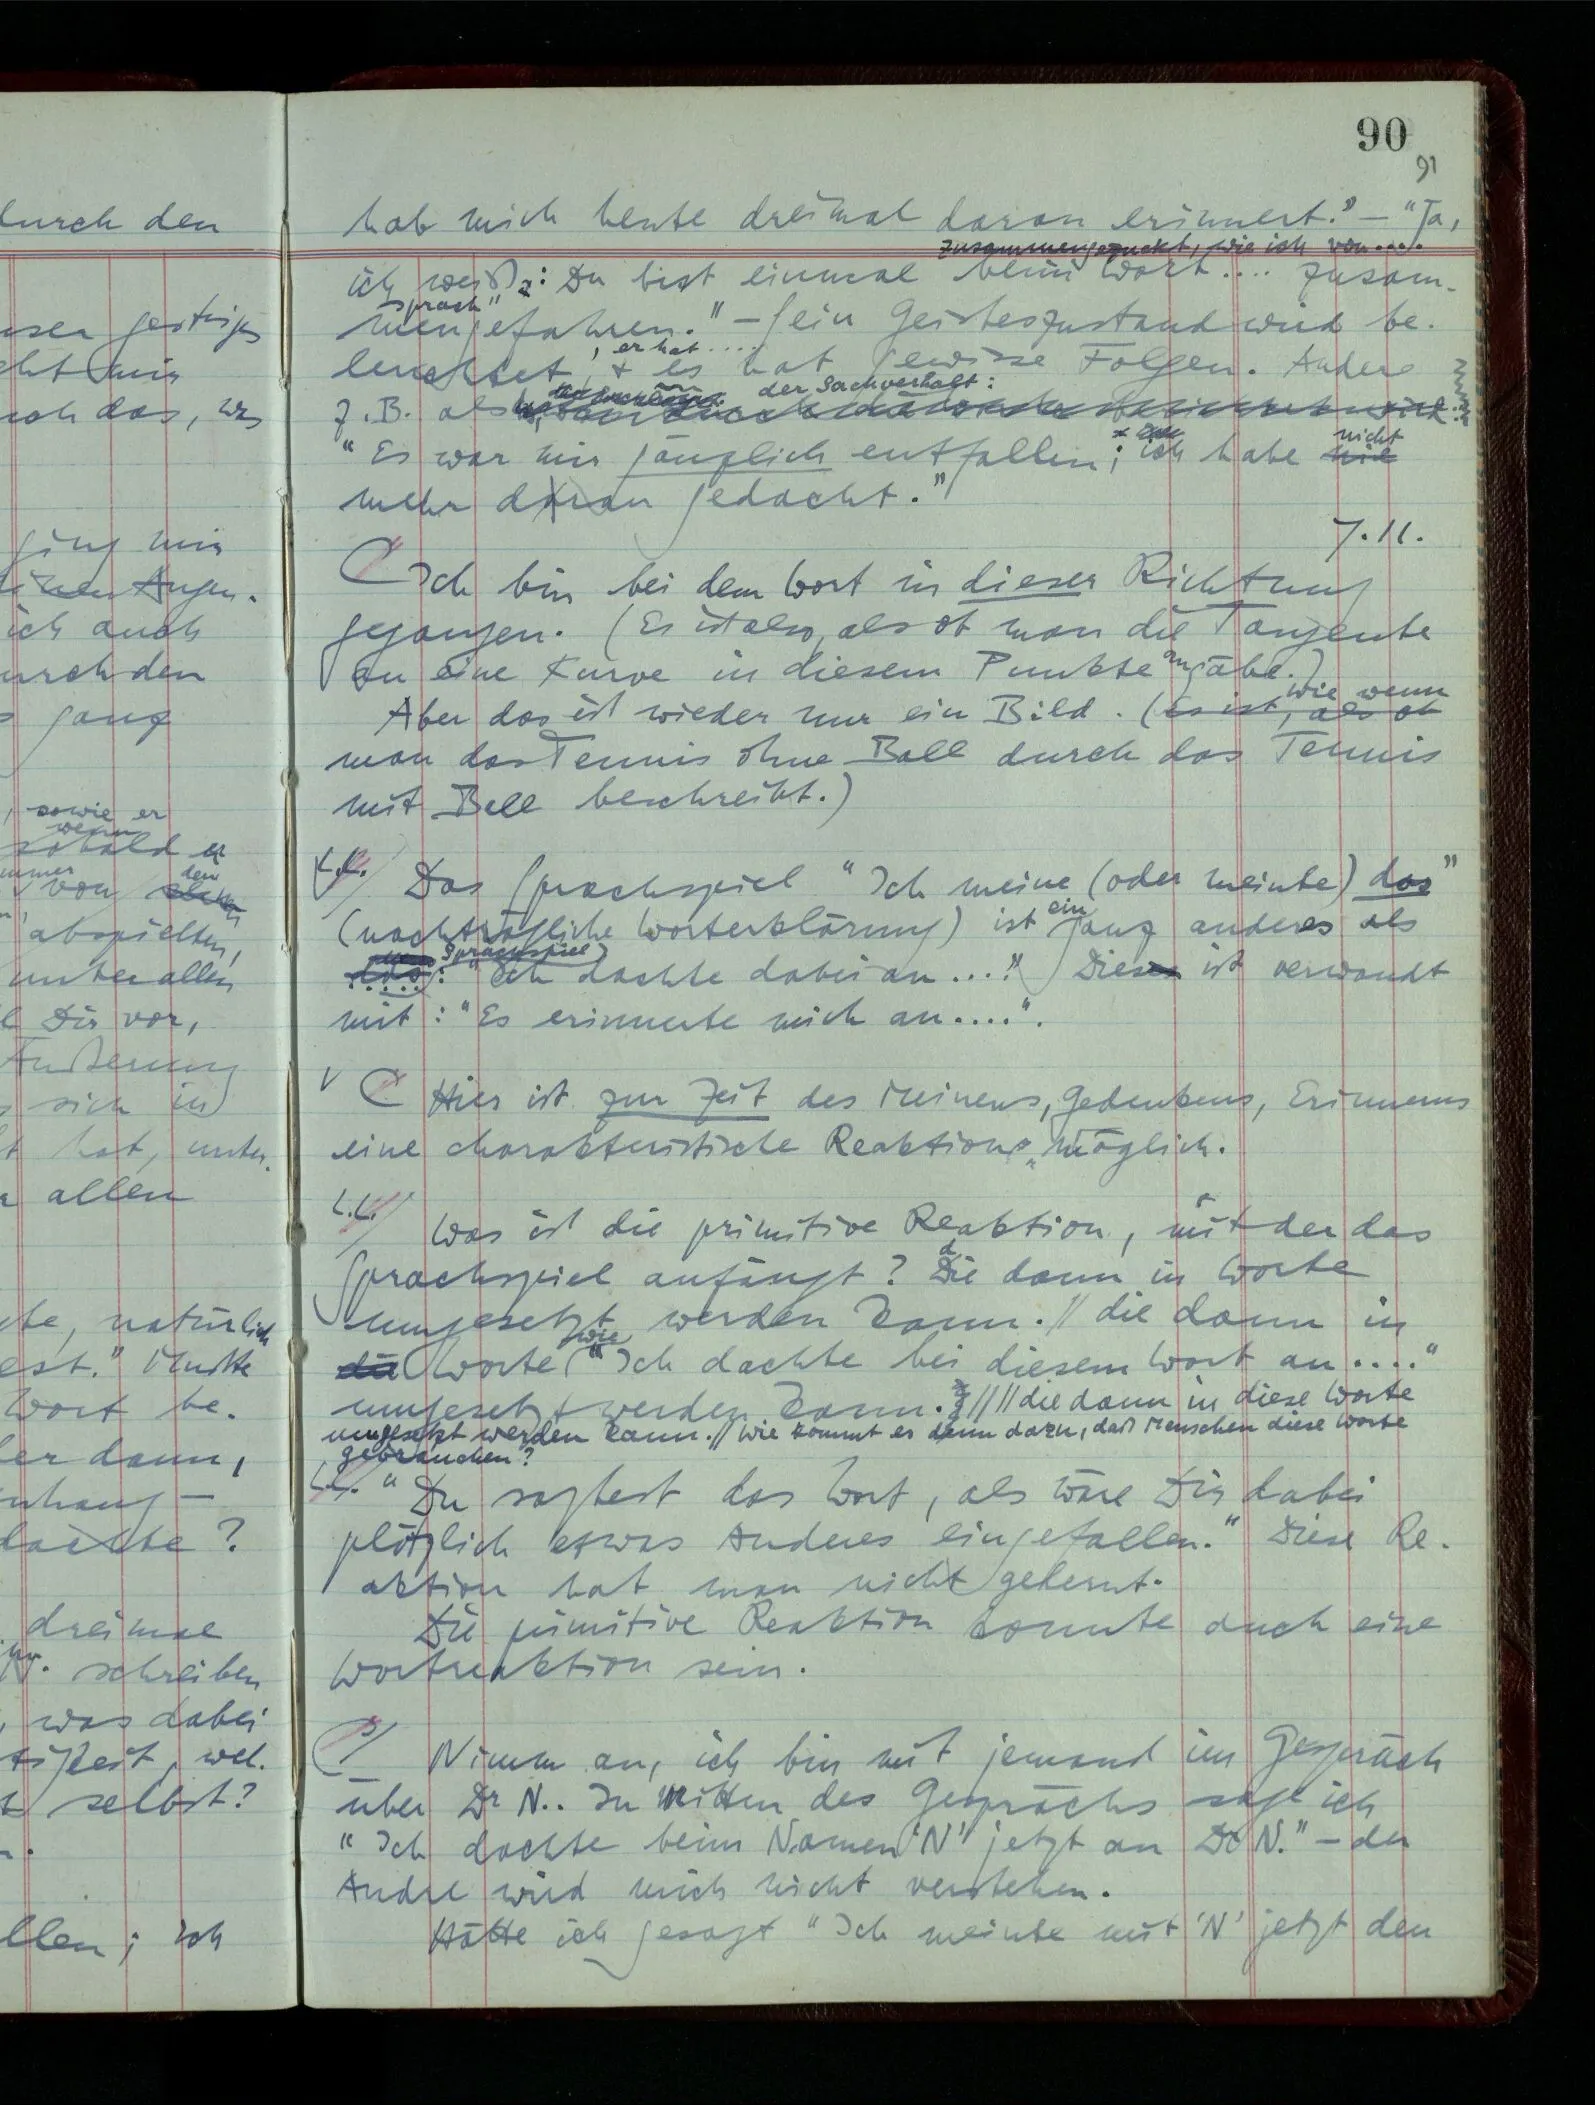 90
91
hab mich heute dreimal daran erinnert." – "Ja,
zusammengezuckt, wie ich von....
ich weiß: Du bist einmal beim Wort .... zusam-
sprach"
mengefahren." – Sein Geisteszustand wird be-
, er hat ....
leuchtet, & es hat gewisse Folgen. Andere
der Sachverhalt:
z.B. als
"Es war mir gänzlich entfallen; ich habe nie
nicht
mehr daran gedacht."
7.11.
Ich bin bei dem Wort in dieser Richtung
gegangen. (Es ist also, als ob man die Tangente
an eine Kurve in diesem Punkte angäbe.)
wie wenn
Aber das ist wieder nur ein Bild. (Es ist, als ob
man das Tennis ohne Ball durch das Tennis
mit Ball beschreibt.)
Das Sprachspiel "Ich meine (oder meinte) das"
(nachträgliche Worterklärung) ist ein ganz anderes als
Sprachspiel)
das: "Ich dachte dabei an ...." Dies ist verwandt
mit: "Es erinnerte mich an....".
V C Hier ist zur Zeit des Meinens, Gedenkens, Erinnerns
eine charakteristische Reaktion möglich.
Was ist die primitive Reaktion, mit der das
Sprachspiel anfängt? Die dann in Worte
umgesetzt werden kann. // die dann in
wie
die Worte ("Ich dachte bei diesem Wort an ...."
umgesetzt werden kann. // // die dann in diese Worte
umgesetzt werden kann. // Wie kommt es denn dazu, daß Menschen diese Worte
gebrauchen?
"Du sagtest das Wort, als wäre Dir dabei
plötzlich etwas Anderes eingefallen." Diese Re-
aktion hat man nicht gelernt.
Die primitive Reaktion konnte auch eine
Wortreaktion sein.
Nimm an, ich bin mit jemand im Gespräch
über Dr N.. In Mitten des Gesprächs sage ich
"Ich dachte beim Namen 'N' jetzt an Dr N." – der
Andre wird mich nicht verstehen.
Hätte ich gesagt "Ich meinte mit 'N' jetzt den
durch den
ging mir
ich auch
durch den
ganz
, sowie er
wenn
sobald er
von
den
abspielten,
unter allen
Dir vor,
Äußerung
sich in
hat, unter
allen
natürlich
Wort be-
er dann,
dachte?
dreimal
schreiben
, was dabei
selbst?
; ich